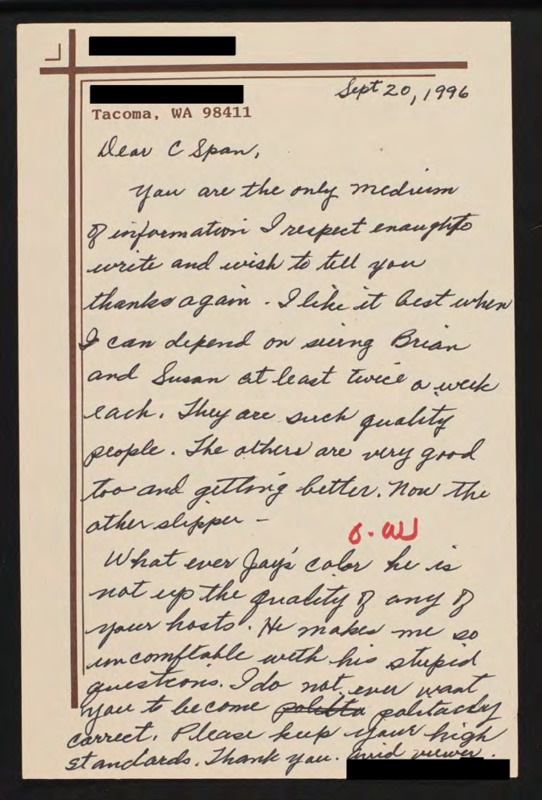 Sept 20, 1996
Tacoma, WA 98411
Dear C Span,
You are the only medium
of information I respect enough to
write and wish to tell you
thanks again - I like it best when
I can depend on seeing Brian
and Susan at least twice a week
each. They are such quality
people. The others are very good
too and getting better. Now the
other slipper -
What ever Jay's color he is
not up the quality of any of
your hosts. He makes me so
uncomftable with his stupid
questions. I do not ever want
you to become politacly
correct. Please keep your high
standards. Thank you. avid viewer.